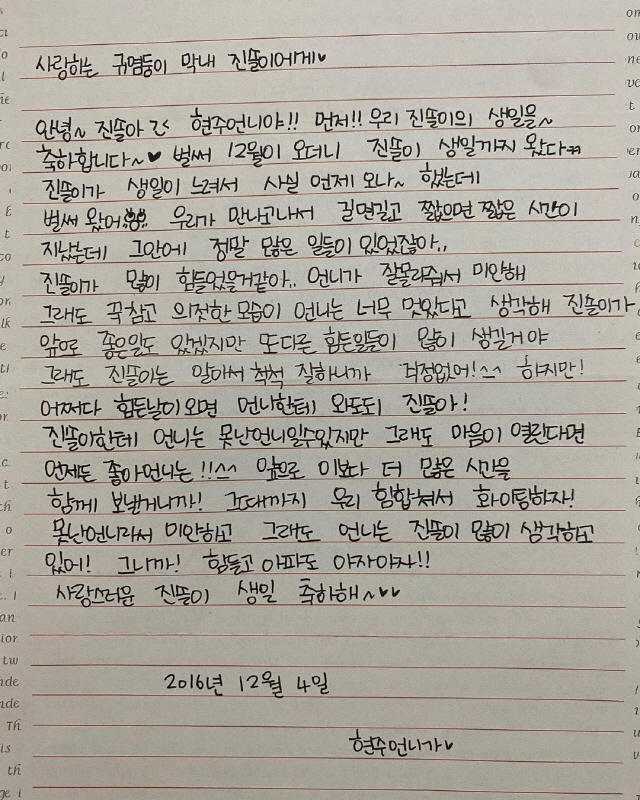 사랑하는 귀염둥이 막내 진뜰이에게♥
안녕~ 진뜰아 현주언니야!! 먼저!! 우리 진뜰이의 생일을~
축하합니다~♥ 벌써 12월이 오더니 진뜰이 생일까지 왔다ㅠ
진뜰이가 생일이 느려서 사실 언제 오나~ 했는데
벌써 왔어 우리가 만나고나서 길면길고 짧으면 짧은 시간이
지났는데 그안에 정말 많은 일들이 있었잖아..
진뜰이가 많이 힘들었을거같아.. 언니가 잘몰라줘서 미안해
그래도 꾹참고 의젓한 모습이 언니는 너무 멋있다고 생각해 진뜰이가
앞으로 좋은일도 있겠지만 또다른 힘든일들이 많이 생길거야
그래도 진뜰이는 알아서 척척 잘하니까 걱정없어!^^ 하지만!
어쩌다 힘든날이오면 언니한테 와도되 진뜰아!
진뜰이한테 언니는 못난언니일수있지만 그래도 마음이 열린다면
언제든 좋아언니는!!^^ 앞으로 이보다 더 많은 시간을
함께 보낼거니까! 그때까지 우리 힘합쳐서 화이팅하자!
못난언니라서 미안하고 그래도 언니는 진뜰이 많이 생각하고
있어! 그니까! 힘들고 아파도 아자아자!!
사랑스러운 진뜰이 생일 축하해~♥♥
2016년 12월 4일
현주언니가♥